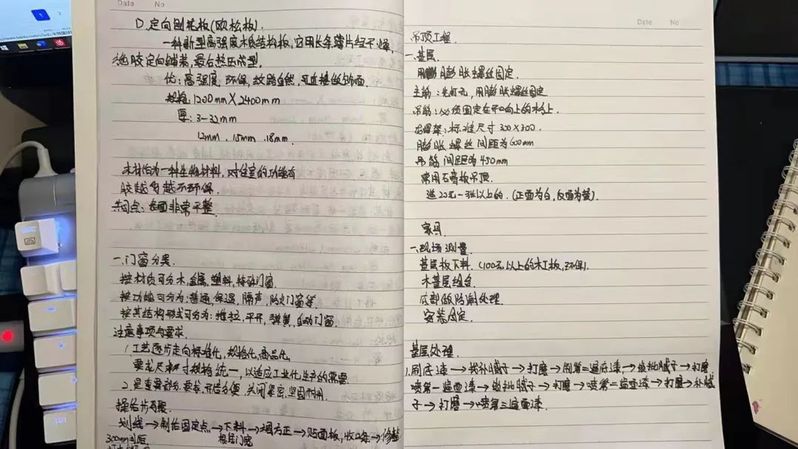 D. 定向刨花板(欧松板).
一种新型高强度木质结构板, 它用长条薄片经干燥,
施胶定向铺装, 最后热压成型.
优: 高强度, 环保, 纹路自然, 可直接做饰面.
规格: 1200mm×2400mm
厚: 3-32mm
12mm. 15mm. 18mm.
木材作为一种生物材料, 对住宅的功能有
胶越多越不环保.
共同点: 表面非常平整
一. 门窗分类.
按材质可分: 木, 金属, 塑料, 特殊门窗
按功能可分为: 普通, 保温, 隔声, 防火门窗等
按其结构形式可分为: 推拉, 平开, 弹簧, 自动门窗.
注意事项与要求.
1. 工艺逐步走向标准化, 规格化, 商品化.
要求尺寸规格统一, 以适应工业化生产的需要
2. 重要部分要求, 开启方便, 关闭紧密, 坚固耐用.
操作步骤.
划线→制作固定点→下料→方正→贴面板, 收口条→修整
300mm间距
Date No
吊顶工程
一. 基层
用膨胀螺丝固定.
用膨胀螺丝固定
固定在平面上的木楔上.
龙骨架: 标准尺寸 300×300.
膨胀螺丝间距为600mm
吊筋间距为450mm
常用石膏板吊顶.
选20元一张以上的. (正面为白, 反面为黄).
家具
一. 现场测量.
基层板下料. (100元以上的木工板, 环保).
木基层组合.
底部做防潮处理.
安装固定.
基层处理.
1. 刷底漆→找补腻子→打磨→刷第二遍底漆→满批腻子→打磨
喷第一遍面漆→满批腻子→打磨→喷第二遍面漆→打磨→补腻
子→打磨→喷第三遍面漆.
Date No